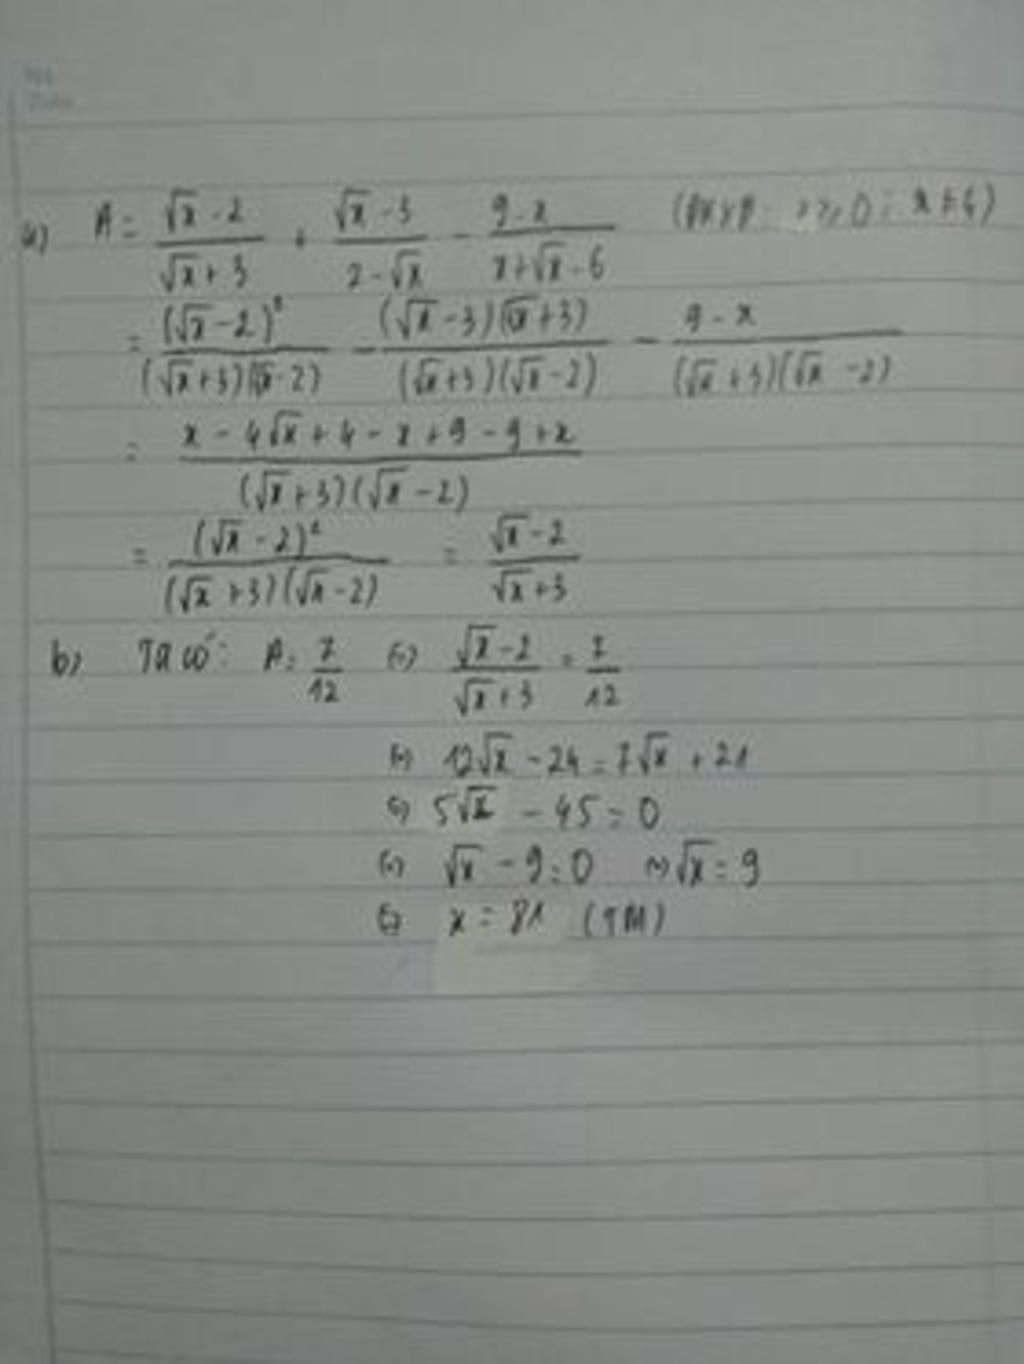 a) A = \frac{\sqrt{x}-2}{\sqrt{x}+3} + \frac{\sqrt{x}-3}{2-\sqrt{x}} - \frac{9-x}{x+\sqrt{x}-6} (ĐKXĐ: x ≥ 0; x ≠ 4)
= \frac{(\sqrt{x}-2)^2}{(\sqrt{x}+3)(\sqrt{x}-2)} - \frac{(\sqrt{x}-3)(\sqrt{x}+3)}{(\sqrt{x}+3)(\sqrt{x}-2)} - \frac{9-x}{(\sqrt{x}+3)(\sqrt{x}-2)}
= \frac{x-4\sqrt{x}+4-x+9-9+x}{(\sqrt{x}+3)(\sqrt{x}-2)}
= \frac{(\sqrt{x}-2)^2}{(\sqrt{x}+3)(\sqrt{x}-2)} = \frac{\sqrt{x}-2}{\sqrt{x}+3}
b) Ta có: A = \frac{7}{12} (=) \frac{\sqrt{x}-2}{\sqrt{x}+3} = \frac{7}{12}
(=) 12\sqrt{x} - 24 = 7\sqrt{x} + 21
(=) 5\sqrt{x} - 45 = 0
(=) \sqrt{x} - 9 = 0 (=) \sqrt{x} = 9
(=) x = 81 (TM)